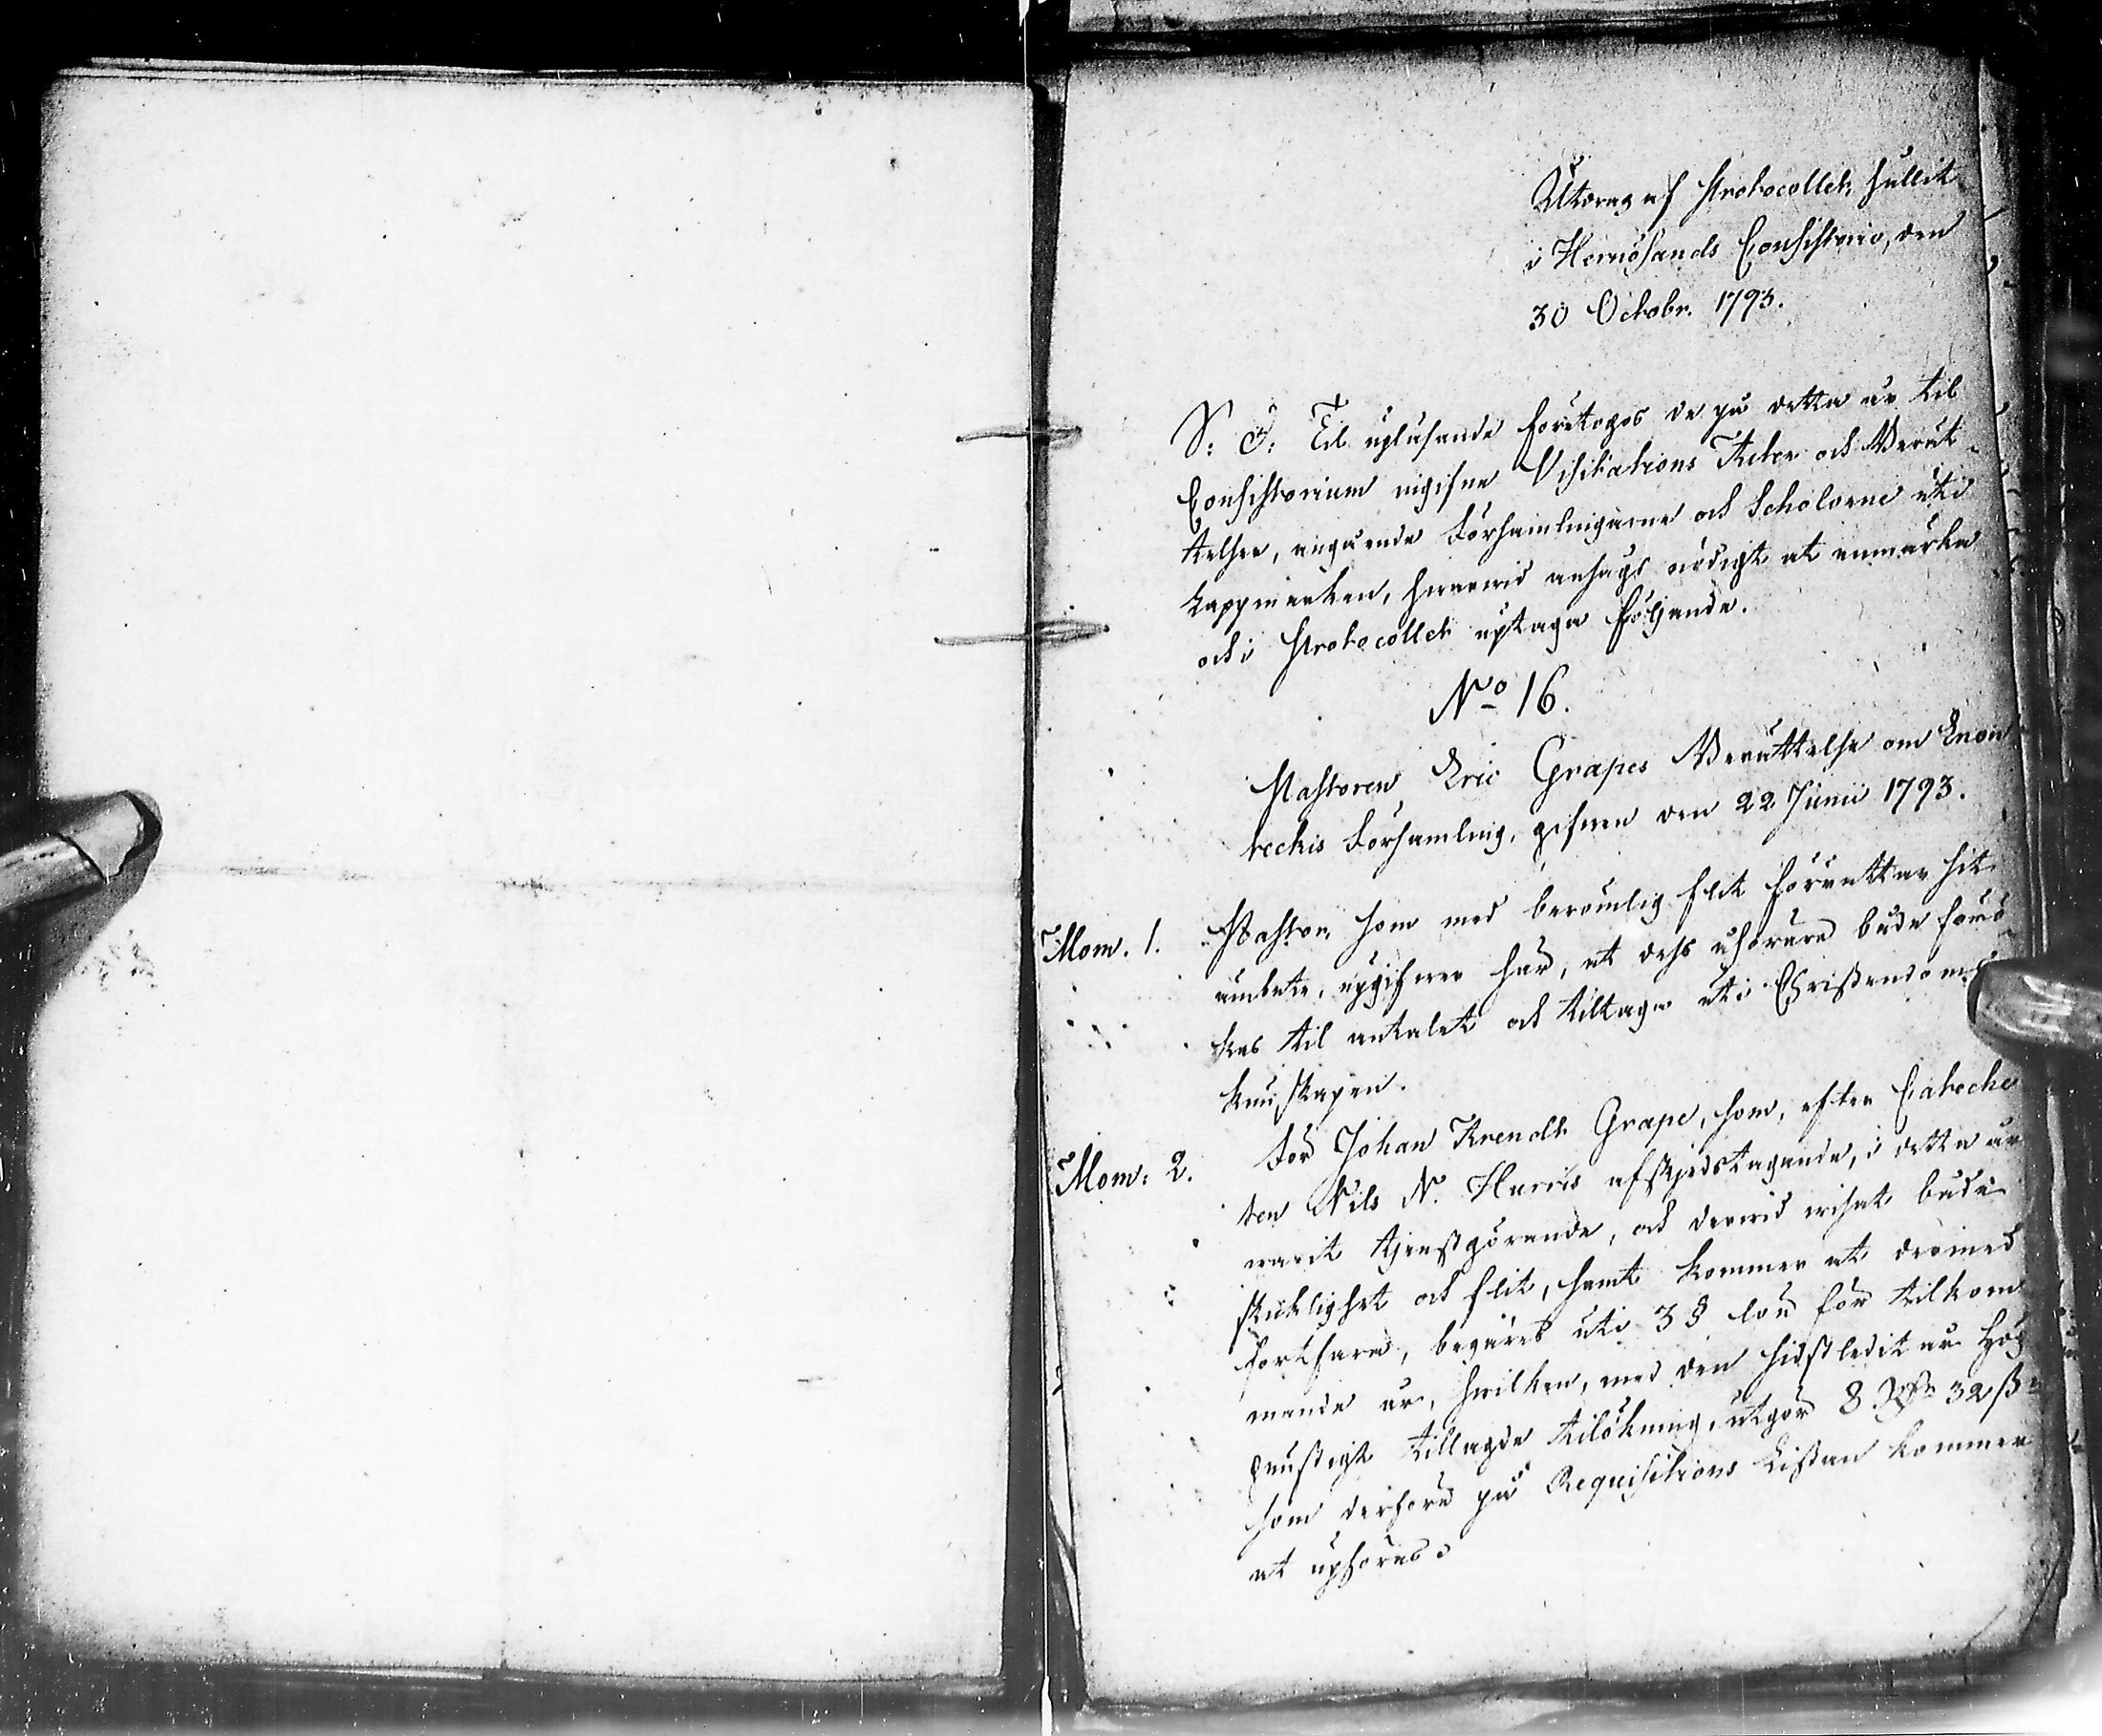 Utdrag af Protocollet, hållit
i Hernösands Consistorio, den
30 Octobr. 1793.
S. D. Til uplåsande företogos de på detta år til
Consistorium ingifne Visitations Acter och Berät-
telser, angående Församlingarne och Scholorne uti
Lappmarken, hvarvid ansågs nödigt at anmärka
och i Protocollet uptaga följande.
No 16.
Pastoren Eric Grapes Berättelse om Enon
teckis Församling, gifven den 22 Junii 1793.
Mom. 1. Pastor, som med berömlig flit förrättar sit
ämbete, upgifver här, at dess åhörare både förö-
kas til antalet och tiltaga uti Christendoms
kunskapen.
Mom: 2. För Johan Arendt Grape, som, efter Cateche
ten Nils N. Hurris afskjedstagande, i detta år
varit tjenstgörande, och dervid visat både
skicklighet och flit, samt kommer at dermed
fortfara, begäres uti 3 § lön för tilkom
mande år, hvilken, med den sidstledit år Hög
gunstigt tillagde tilökning, utgör 8 Rdr 32 ß
som derföre på Requisitions Listan kommer
at upföras